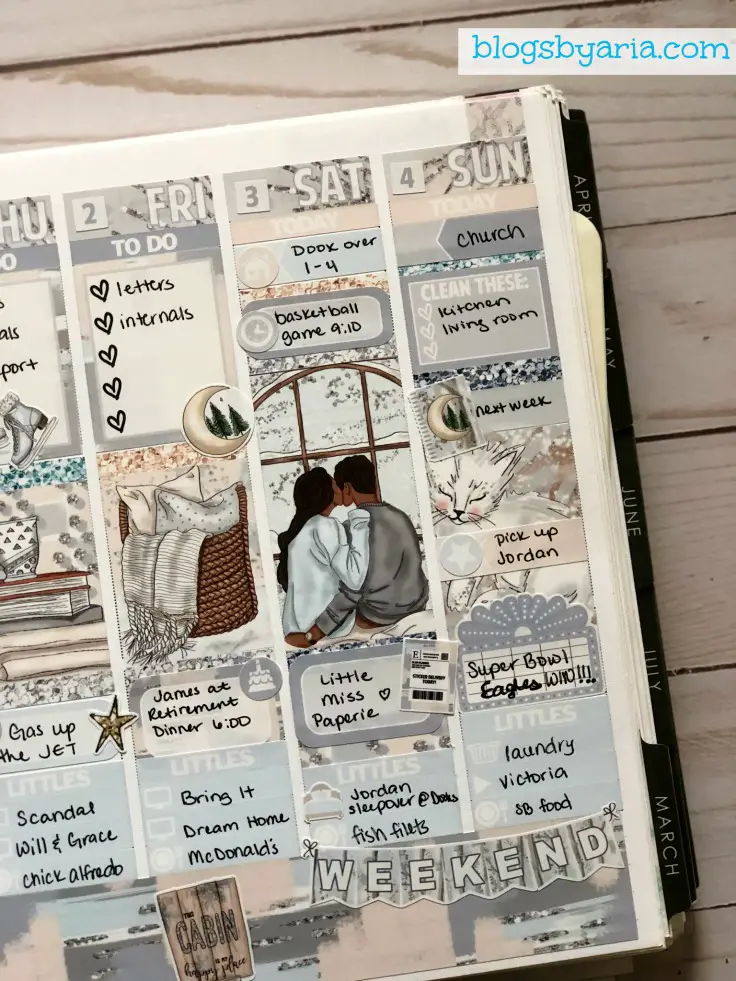 blogsbyaria.com
HU
als
port
Gas up
the JET
LITTLES
Scandal
Will & Grace
chick alfredo
2 FRI
TO DO
letters
internals
James at
Retirement
Dinner 6:00
LITTLES
Bring It
Dream Home
McDonald's
3 SAT
TODAY
Dook over
1-4
basketball
game 9:10
Little
Miss
Paperie
STICKER DELIVERY
TODAY!
LITTLES
Jordan
sleepover @ Dooks
fish filets
4 SUN
TODAY
church
CLEAN THESE:
kitchen
living room
next week
pick up
Jordan
Super Bowl
Eagles WIN!!!
LITTLES
laundry
victoria
SB food
WEEKEND
THE
CABIN
IS MY
happy place
APRI
MAY
JUNE
JULY
MARCH